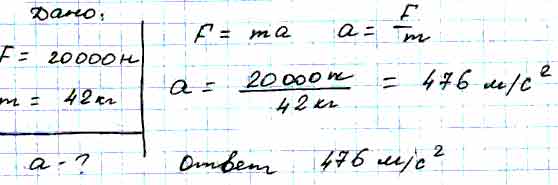 Дано:
F = 20000н
m = 42кг
a - ?
F = ma a = F/m
a = 20000н/42кг = 476 м/с²
ответ 476 м/с²